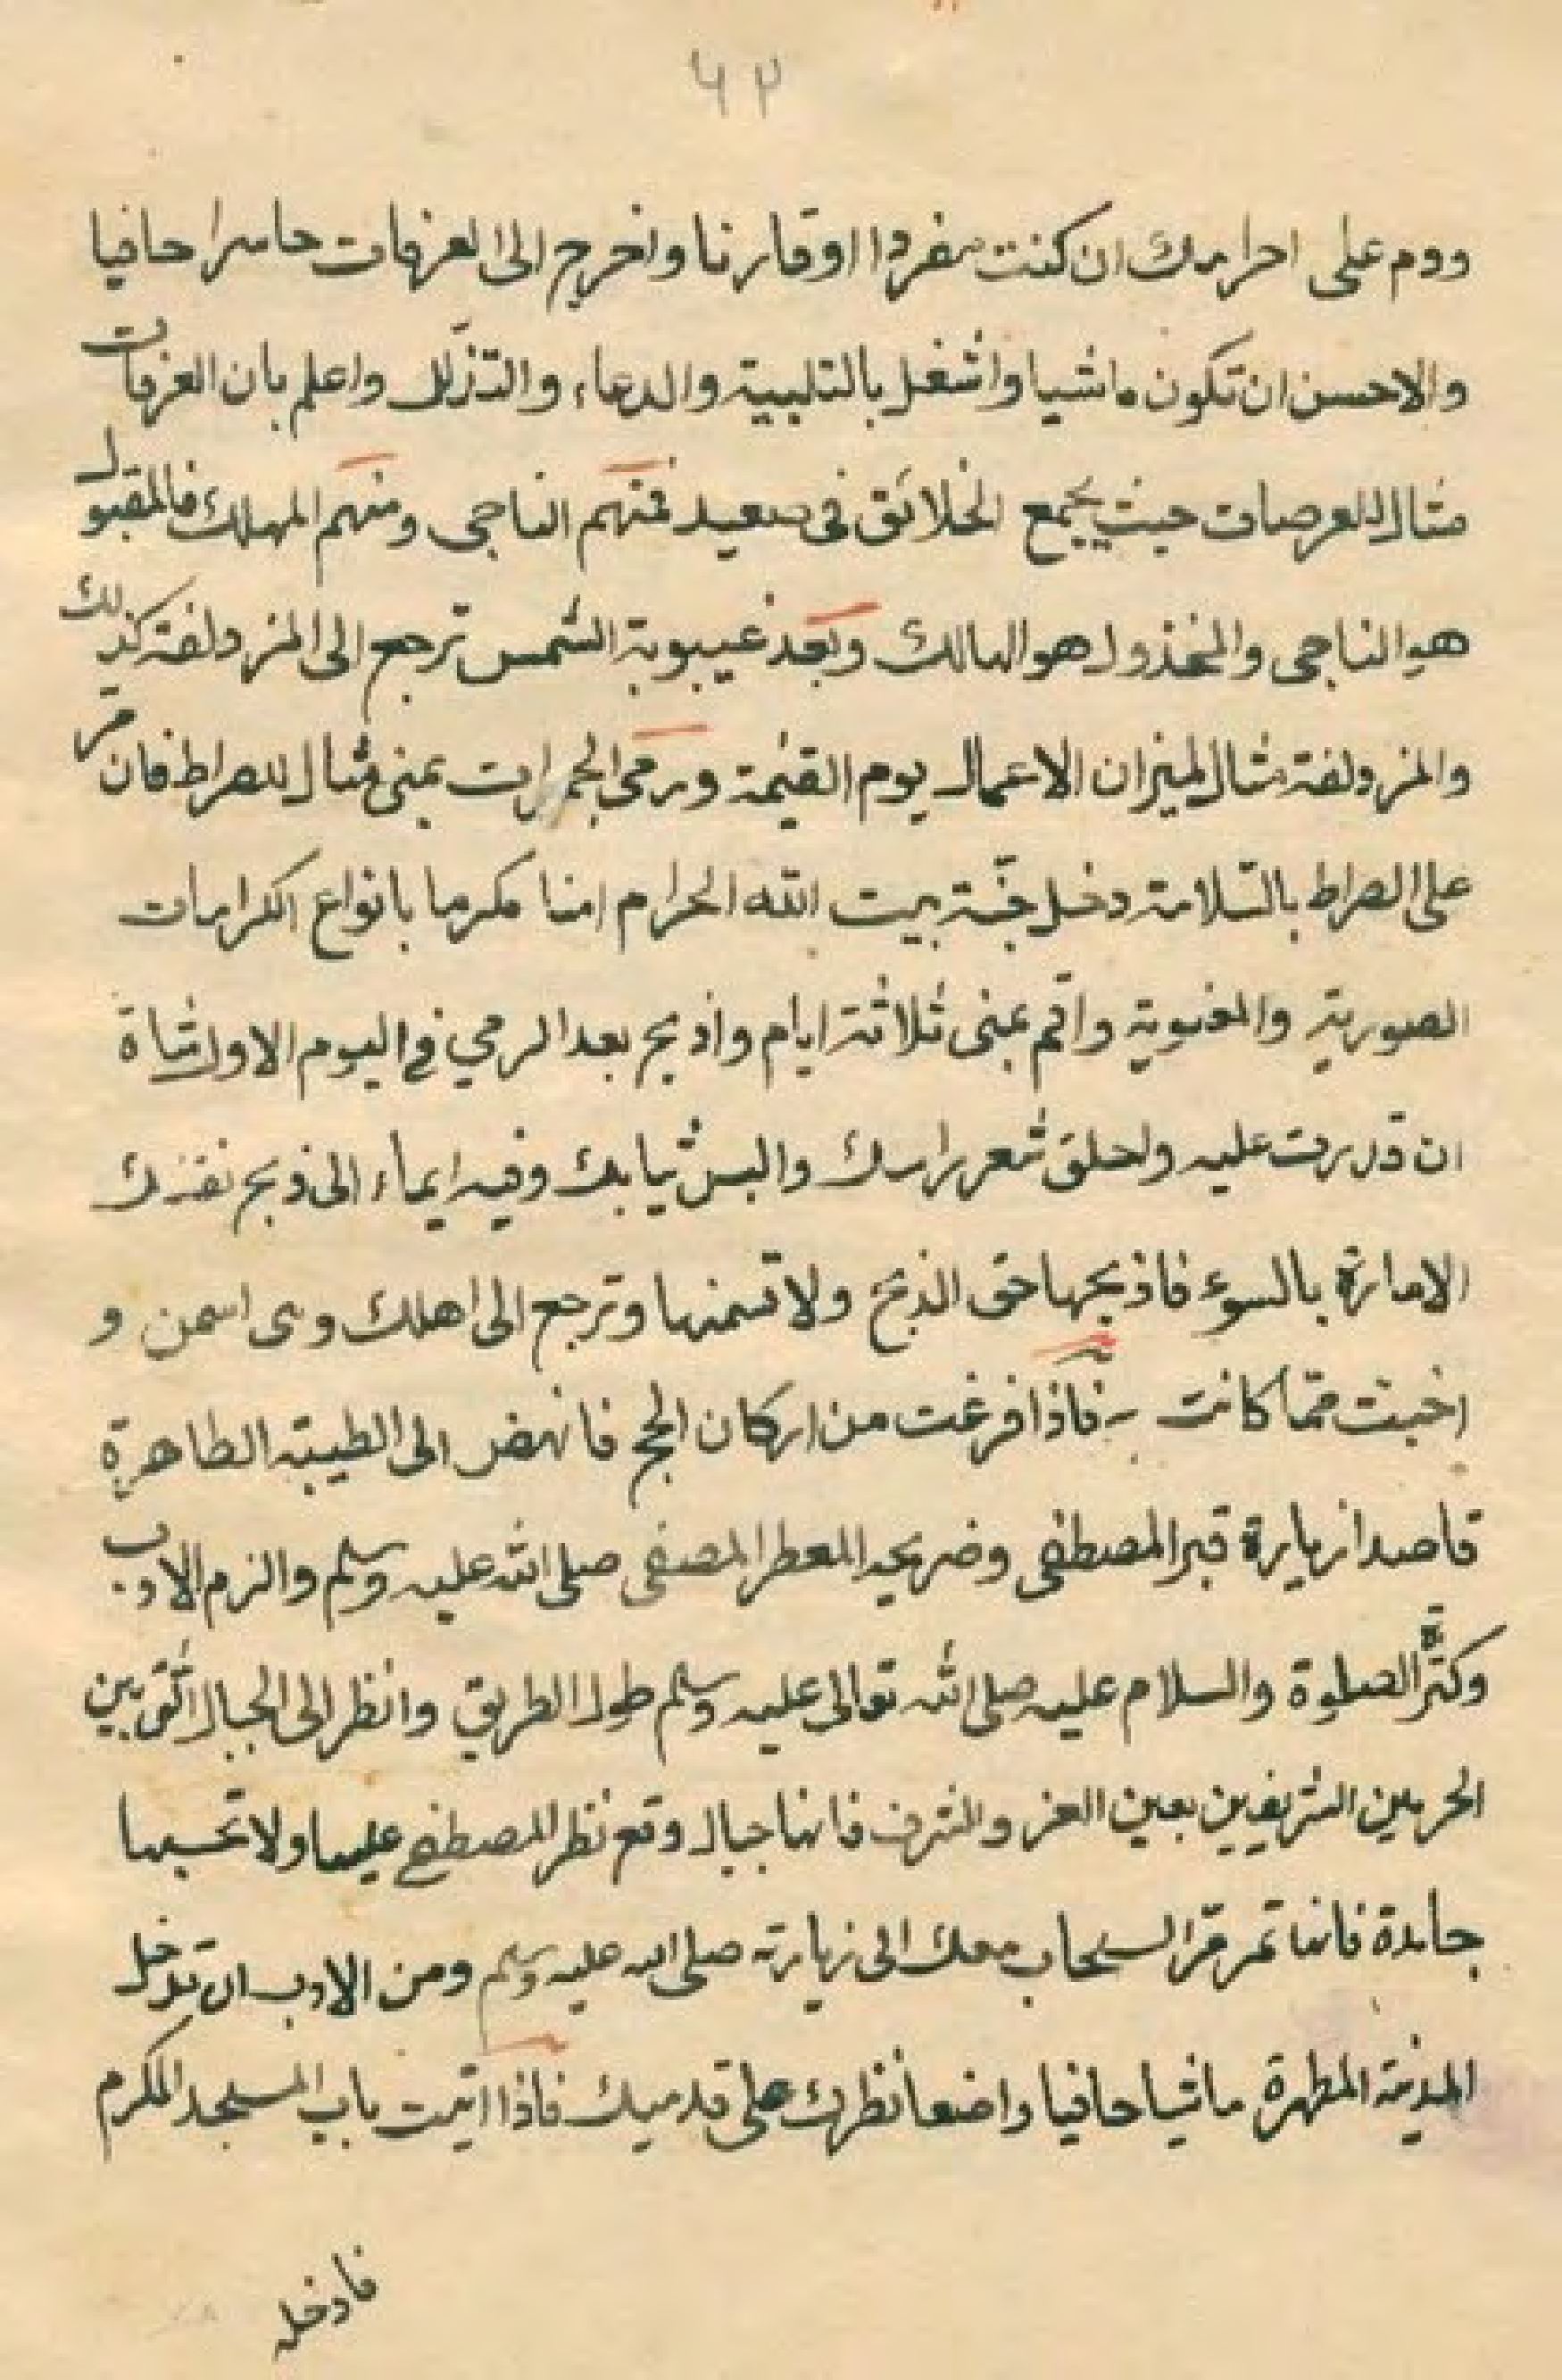 ٤٢
ودم على احرامك ان كنت مفردا او قارنا واخرج الى العرفات حاسرا حافيا
والاحسن ان تكون ماشيا واشغل بالتلبية والدعاء والتذلل واعلم بان العرفات
مثال للعرصات حيث يجمع الخلائق فى صعيد فمنهم الناجى ومنهم المهلك فالمقبول
هو الناجى والمخذول هو الهالك وبعد غيبوبة الشمس ترجع الى المزدلفة كذلك
والمزدلفة مثال لميزان الاعمال يوم القيمة ورمى الجمرات بمنى مثال للصراط فان مر
على الصراط بالسلامة دخل جنة بيت الله الحرام امنا مكرما بانواع الكرامات
الصورية والمعنوية واقم بمنى ثلاثة ايام واذبح بعد الرمي في اليوم الاول شاة
ان قدرت عليه واحلق شعر راسك والبس ثيابك وفيه ايماء الى ذبح نفسك
الامارة بالسوء فاذبحها حق الذبح ولا تسمنها وترجع الى اهلك وهى اسمن و
اخبث مما كانت فاذا فرغت من اركان الحج فانهض الى الطيبة الطاهرة
قاصدا زيارة قبر المصطفى وضريحه المعطر المصفى صلى الله عليه وسلم والزم الادب
وكثر الصلوة والسلام عليه صلى الله تعالى عليه وسلم طول الطريق وانظر الى الجبال بين
الحرمين الشريفين بعين العز والشرف فانها جبال وقع نظر المصطفى عليها ولا تحسبها
جامدة فانها تمر مر السحاب معك الى زيارته صلى الله عليه وسلم ومن الادب ان تدخل
المدينة المطهرة ماشيا حافيا واضعا نظرك على قدميك فاذا اتيت باب المسجد المكرم
فادخل